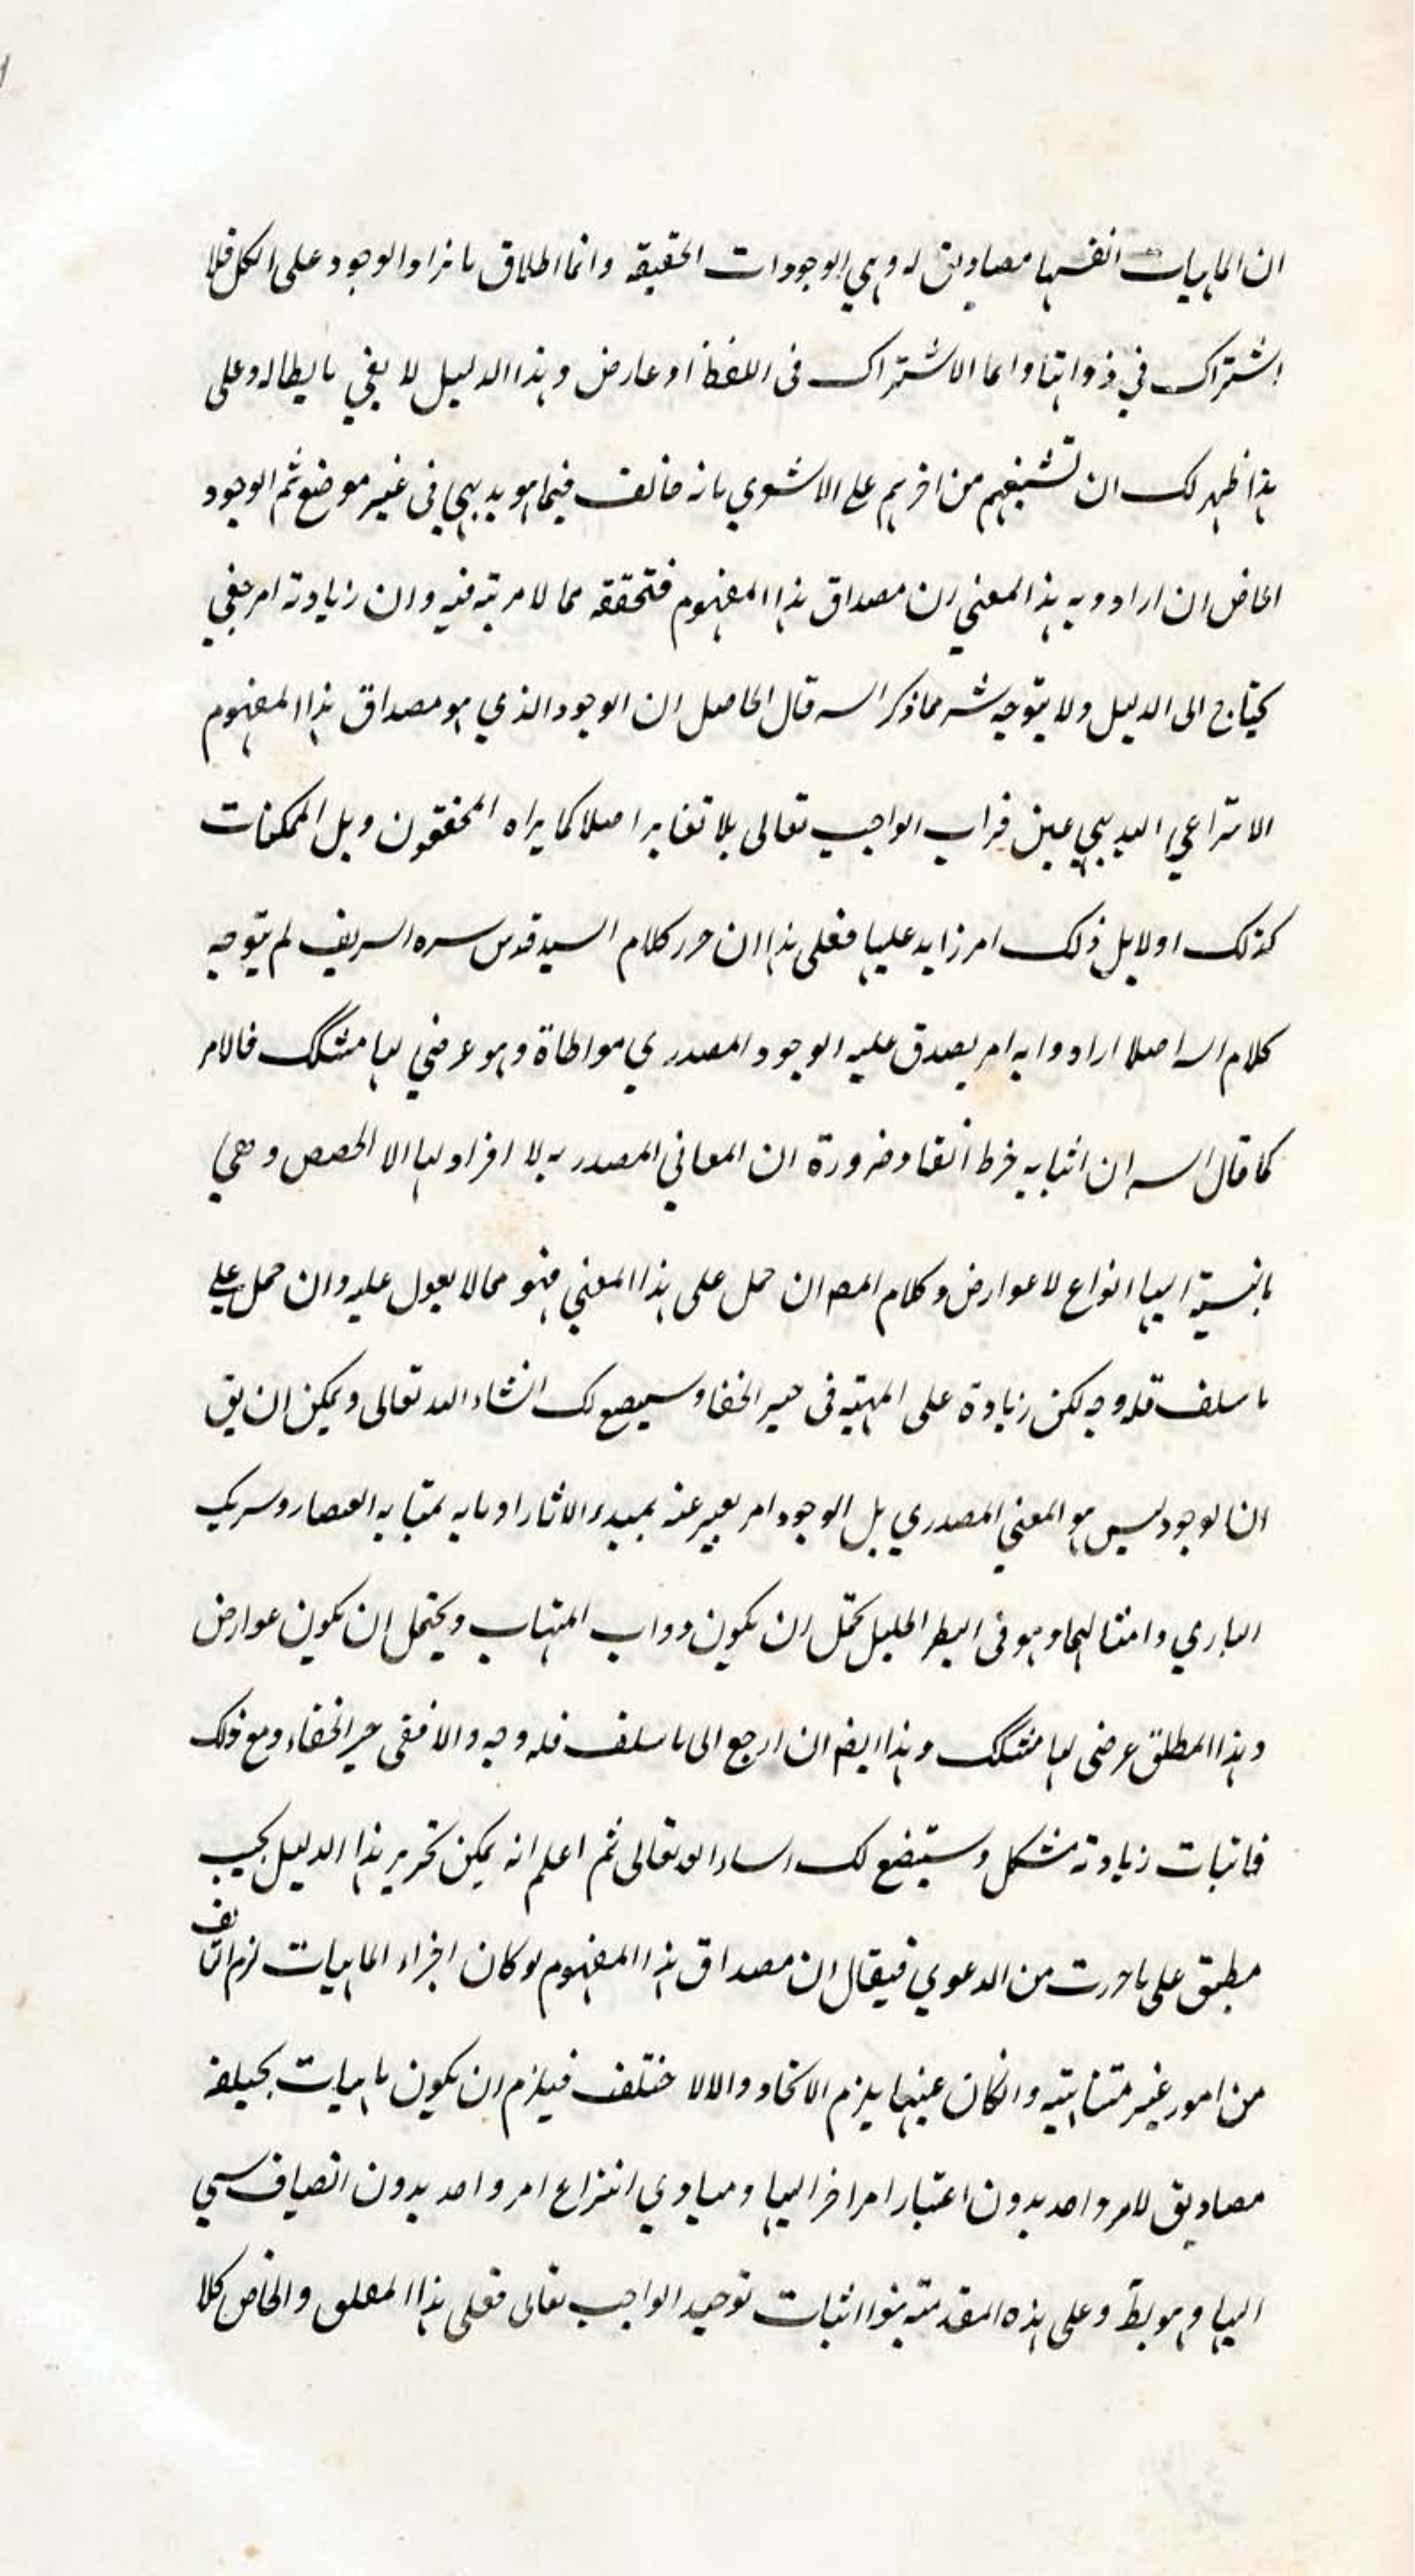 ان الماهيات انفسها مصاديق له وهي الوجودات الحقيقة وانما اطلاق ما نراد الوجود على الكل فلا
اشتراك في ذواتها وانما الاشتراك فى اللفظ او عارض وهذا الدليل لا يفي بابطاله وعلى
هذا ظهر لك ان تشنيعهم من اخرهم على الاشعري بانه خالف فيما هو بديهي فى غير موضع ثم الوجود
الخاص ان ارادوا به هذا المعنى ان مصداق هذا المفهوم فتحققه مما لا مرية فيه وان زيادته امر خفي
يحتاج الى الدليل ولا يتوجه مما ذكر السه قال الحاصل ان الوجود الذي هو مصداق هذا المفهوم
الانتزاعي البديهي عين الواجب تعالى بلا تغاير اصلا كما يراه المحققون وهل الممكنات
كذلك او لا بل ذلك امر زايد عليها فعلى هذا ان حرر كلام السيد قدس سره السريف لم يتوجه
كلام السه اصلا ارادوا به امر يصدق عليه الوجود المصدري مواطاة وهو عرضي لها مشكك فالامر
كما قال السه ان اثباته خرط القتاد ضرورة ان المعاني المصدريه لا افراد لها الا الحصص وهي
بالنسبة اليها انواع لا عوارض وكلام المصه ان حمل على هذا المعنى فهو مما لا يعول عليه وان حمل على
ما سلف فله وجه لكن زيادة على المهية فى حيز الخفا وسيصح لك انشاء الله تعالى ويمكن ان يق
ان الوجود ليس هو المعنى المصدري بل الوجود امر يعبر عنه بمبدء الاثار او ما به
البارى وامثالهما وهو فى النظر الجليل يحتمل ان يكون ويحتمل ان يكون عوارض
وهذا المطلق عرضى لها مشكك وهذا ايضه ان ارجع الى ما سلف فله وجه والا ففى حيز الخفاء ومع ذلك
فاثبات زيادته مشكل وستيضح لك انساء الله تعالى ثم اعلم انه يمكن تحرير هذا الدليل بحيث
مطبق على ما حررت من الدعوي فيقال ان مصداق هذا المفهوم لو كان اجزاء الماهيات لزم التاليف
من امور غير متناهية وانكان عينها يلزم الاتحاد والالا ختلف فيلزم ان يكون ماهيات مختلفه
مصاديق لامر واحد بدون اعتبار امر اخر اليها ومبادي انتزاع امر واحد بدون انضياف شي
اليها وهو بط وعلى هذه المقدمة بنوا اثبات توحيد الواجب تعالى فعلى هذا المطلق والخاص كلا